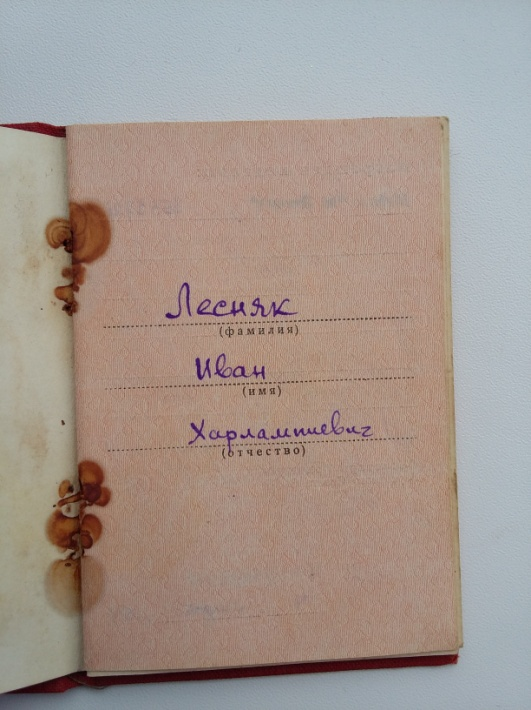 Лесняк
(фамилия)
Иван
(имя)
Харлампиевич
(отчество)